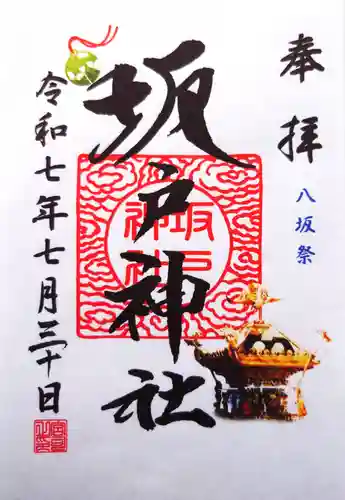 奉拝
八坂祭
坂戸神社
令和七年七月三十日